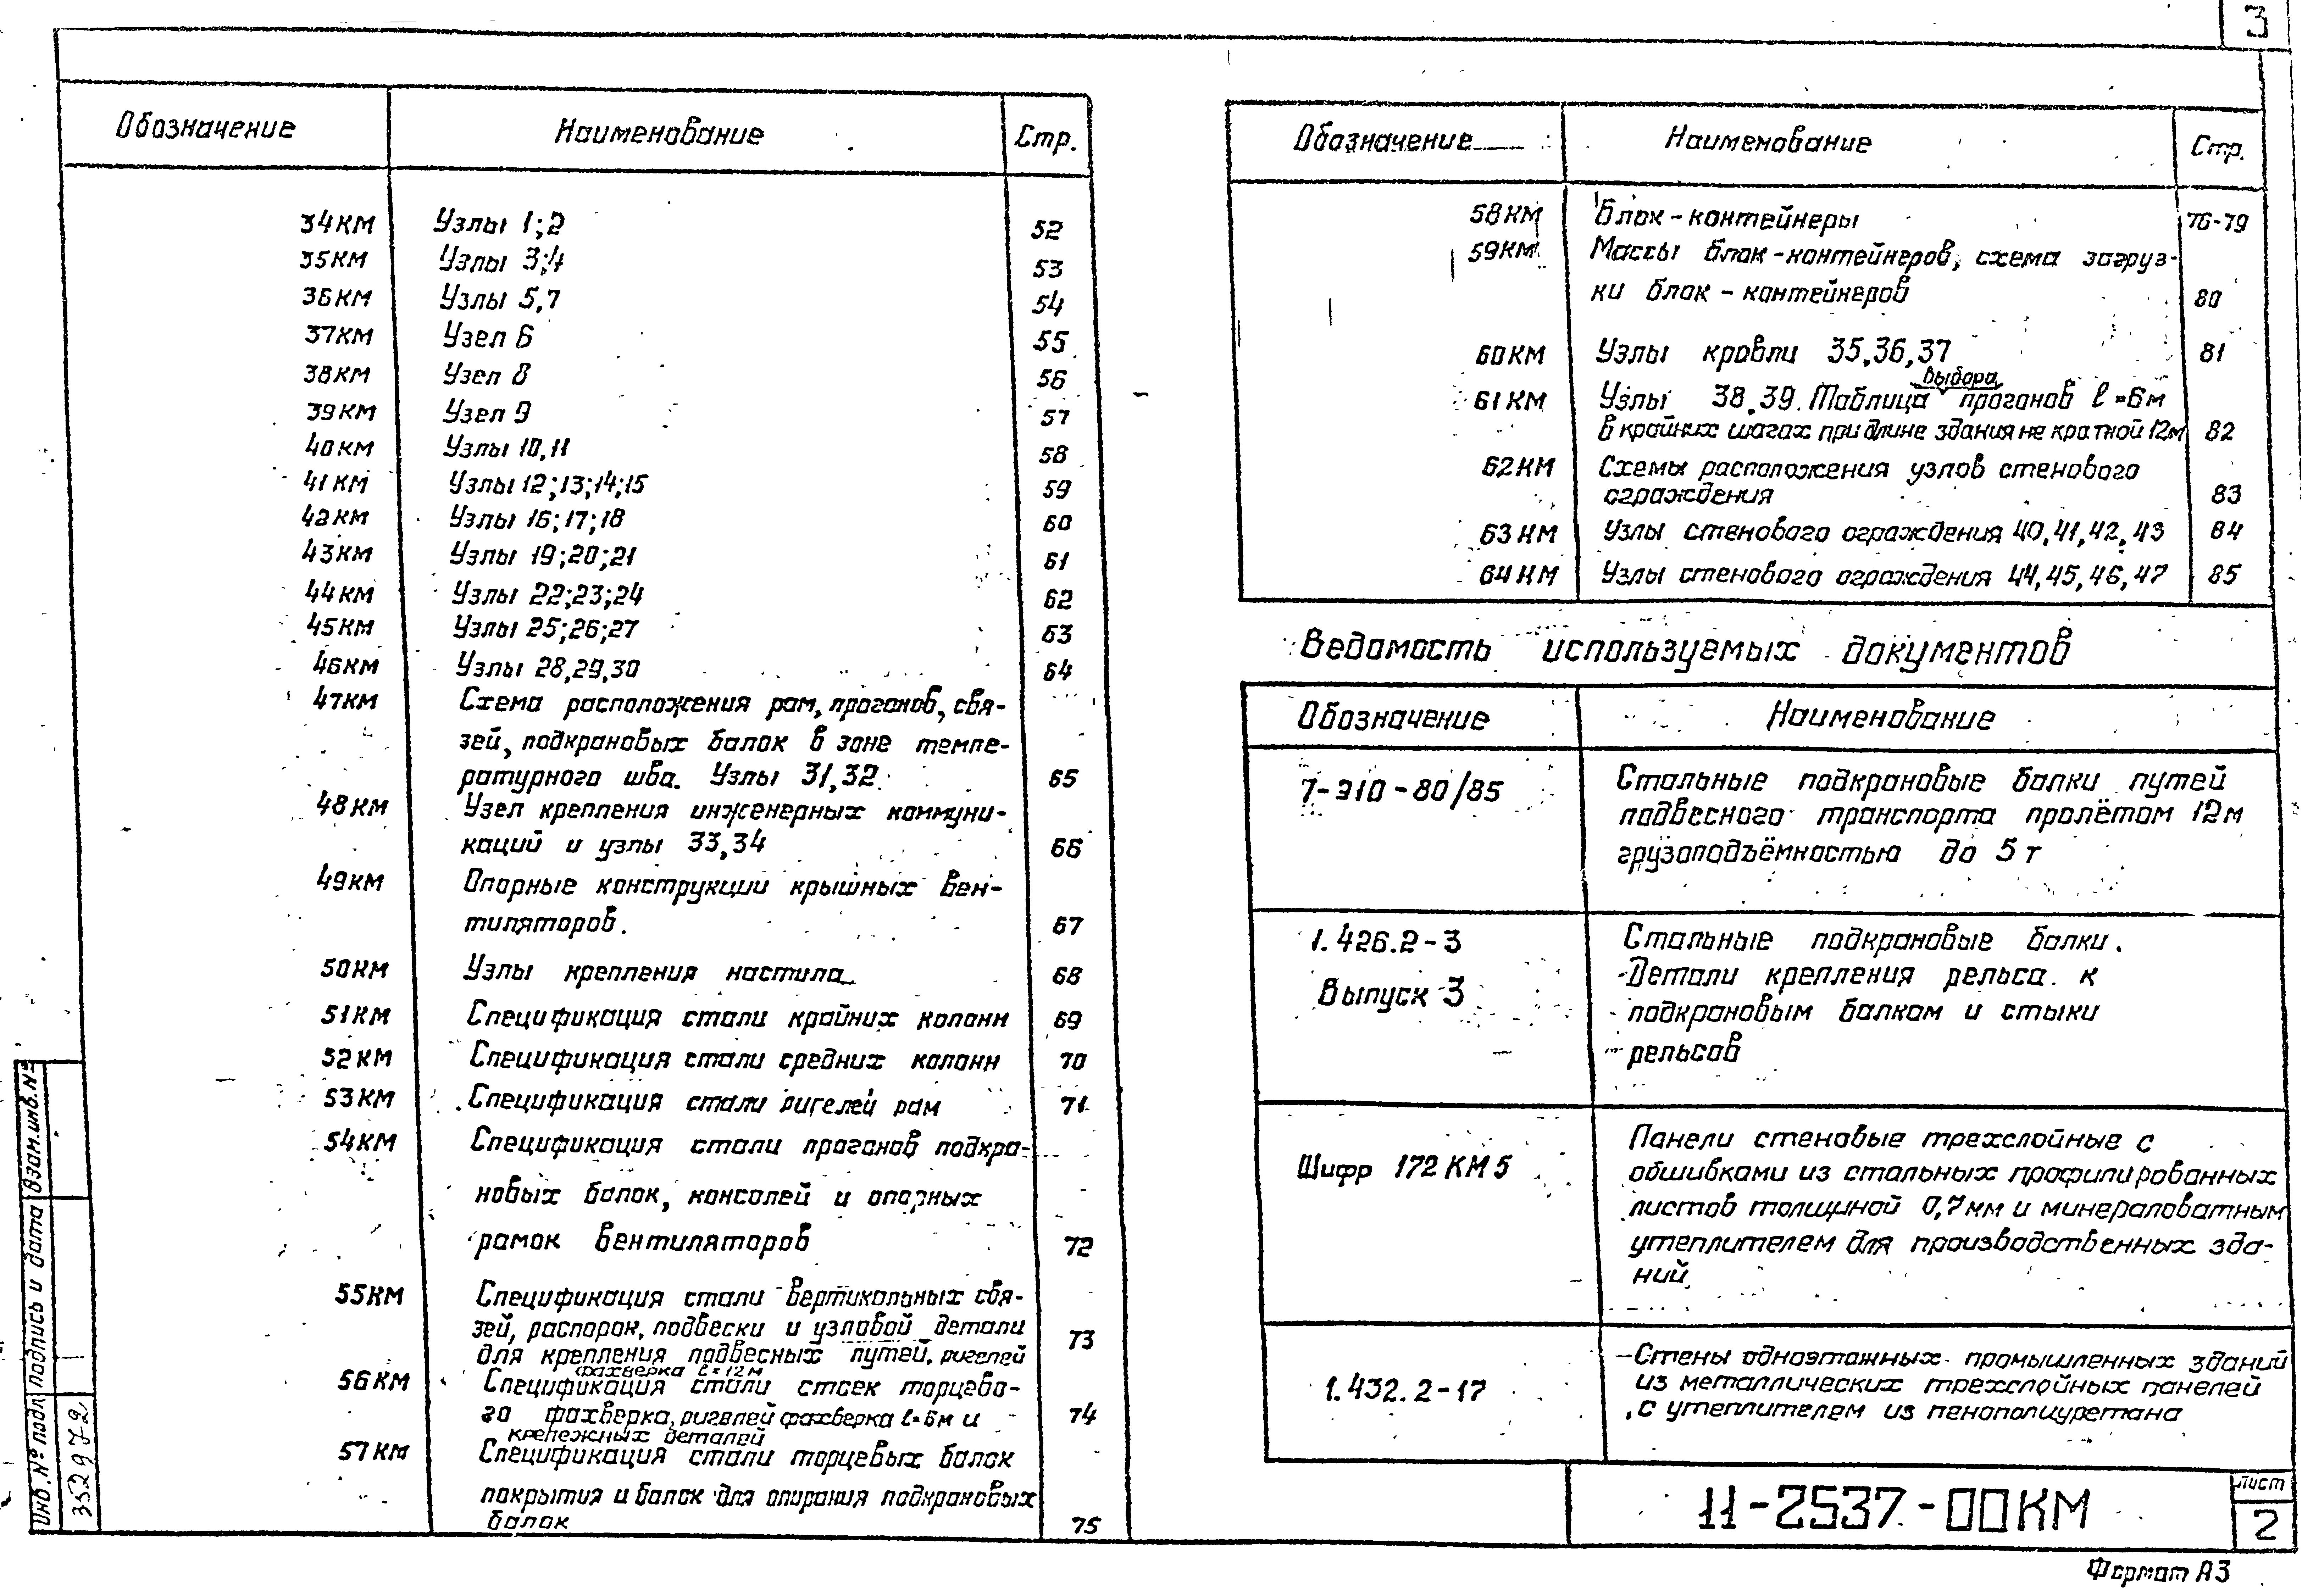 3
Обозначение Наименование Стр.
34КМ Узлы 1;2 52
35КМ Узлы 3;4 53
36КМ Узлы 5,7 54
37КМ Узел 6 55
38КМ Узел 8 56
39КМ Узел 9 57
40КМ Узлы 10,11 58
41КМ Узлы 12;13;14;15 59
42КМ Узлы 16;17;18 60
43КМ Узлы 19;20;21 61
44КМ Узлы 22;23;24 62
45КМ Узлы 25;26;27 63
46КМ Узлы 28,29,30 64
47КМ Схема расположения рам, прогонов, свя-
зей, подкрановых балок в зоне темпе-
ратурного шва. Узлы 31,32 65
48КМ Узел крепления инженерных коммуни-
каций и узлы 33,34 66
49КМ Опорные конструкции крышных вен-
тиляторов. 67
50КМ Узлы крепления настила 68
51КМ Спецификация стали крайних колонн 69
52КМ Спецификация стали средних колонн 70
53КМ Спецификация стали ригелей рам 71
54КМ Спецификация стали прогонов подкра-
новых балок, консолей и опорных
рамок вентиляторов 72
55КМ Спецификация стали вертикальных свя-
зей, распорок, подвески и узловой детали 73
для крепления подвесных путей, ригелей
фахверка ℓ=12м
56КМ Спецификация стали стоек торцево-
го фахверка, ригелей фахверка ℓ=6м и 74
крепежных деталей
57КМ Спецификация стали торцевых балок
покрытия и балок для опирания подкрановых
балок 75
Обозначение Наименование Стр.
58КМ Блок-контейнеры 76-79
59КМ Массы блок-контейнеров, схема загруз-
ки блок-контейнеров 80
60КМ Узлы кровли 35,36,37 81
выбора
61КМ Узлы 38,39. Таблица прогонов ℓ=6м
в крайних шагах при длине здания не кратной 12м 82
62КМ Схемы расположения узлов стенового
ограждения 83
63КМ Узлы стенового ограждения 40,41,42,43 84
64КМ Узлы стенового ограждения 44,45,46,47 85
Ведомость используемых документов
Обозначение Наименование
7-310-80/85 Стальные подкрановые балки путей
подвесного транспорта пролётом 12м
грузоподъёмностью до 5т
1.426.2-3 Стальные подкрановые балки.
Выпуск 3 Детали крепления рельса к
подкрановым балкам и стыки
рельсов
Шифр 172КМ5 Панели стеновые трехслойные с
обшивками из стальных профилированных
листов толщиной 0,7мм и минераловатным
утеплителем для производственных зда-
ний
1.432.2-17 Стены одноэтажных промышленных зданий
из металлических трехслойных панелей
с утеплителем из пенополиуретана
Инв.№ подл. Подпись и дата Взам.инв.№
352972
11-2537-00КМ
Лист
2
Формат А3